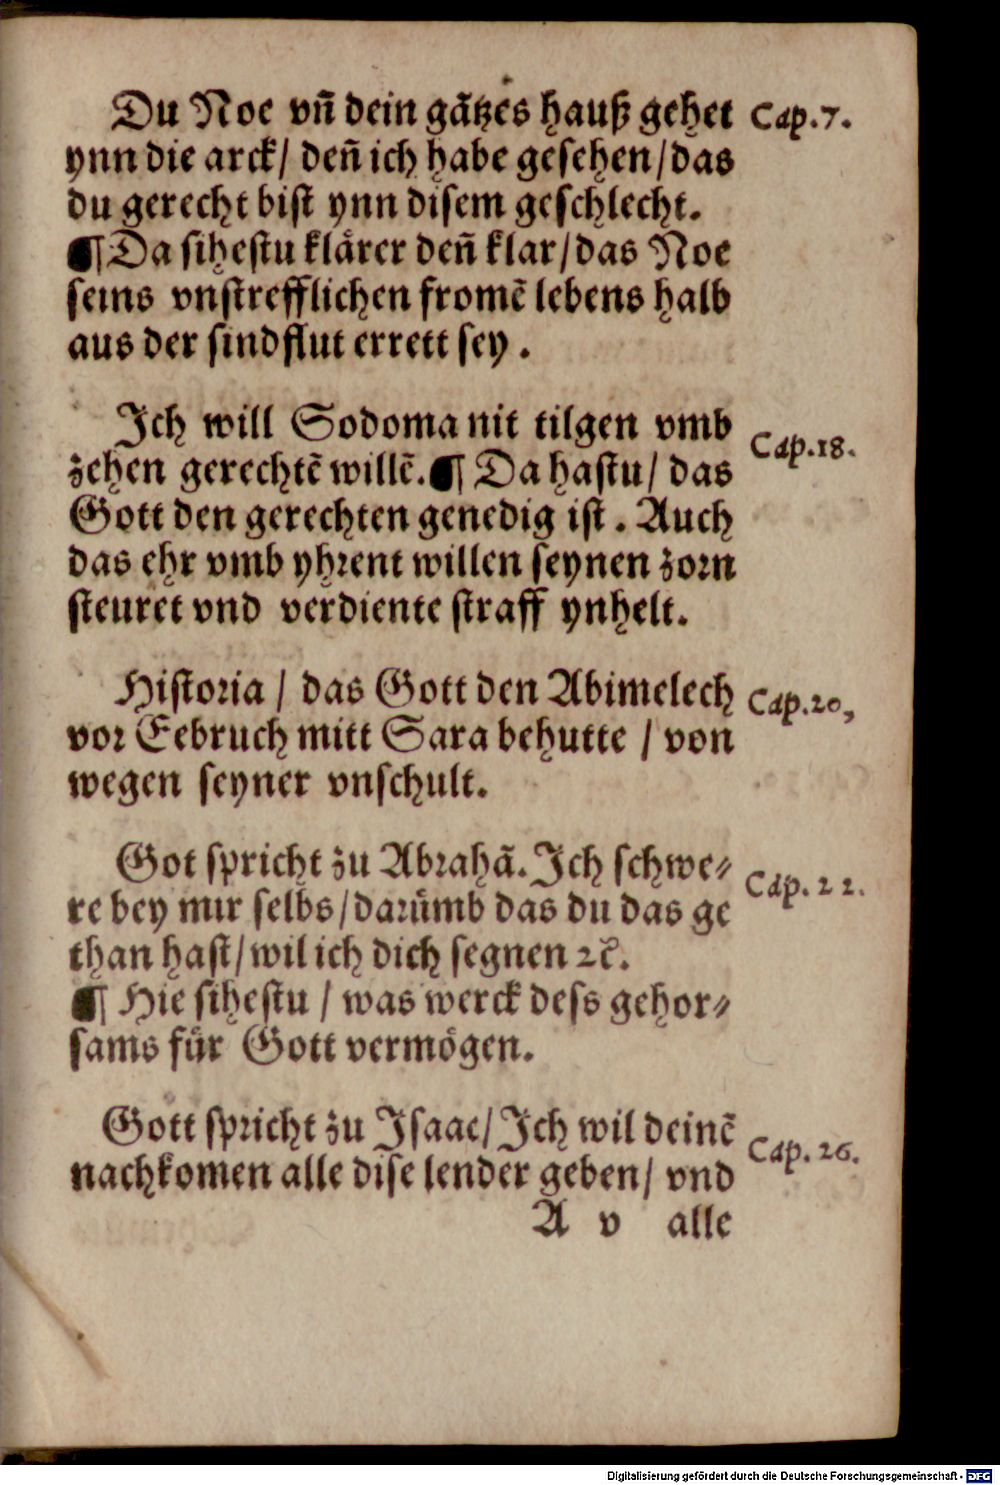 Du Noe vñ dein gãtzes hauß gehet
Cap.7.
ynn die arck/ deñ ich habe gesehen/das
du gerecht bist ynn disem geschlecht.
¶ Da sihestu klårer deñ klar/das Noe
seins vnstrefflichen fromẽ lebens halb
aus der sindflut errett sey.
Jch will Sodoma nit tilgen vmb
Cap.18.
zehen gerechtẽ willẽ.¶ Da hastu/ das
Gott den gerechten genedig ist. Auch
das ehr vmb yhrent willen seynen zorn
steuret vnd verdiente straff ynhelt.
Historia / das Gott den Abimelech
Cap.20,
vor Eebruch mitt Sara behutte / von
wegen seyner vnschult.
Got spricht zu Abrahã. Jch schwe⸗
Cap.22.
re bey mir selbs/darůmb das du das ge
than hast/wil ich dich segnen ꝛc̃.
¶ Hie sihestu / was werck dess gehor⸗
sams für Gott vermögen.
Gott spricht zu Jsaac/ Jch wil deinẽ
Cap.26.
nachkomen alle dise lender geben/ vnd
A v alle
Digitalisierung gefördert durch die Deutsche Forschungsgemeinschaft - DFG